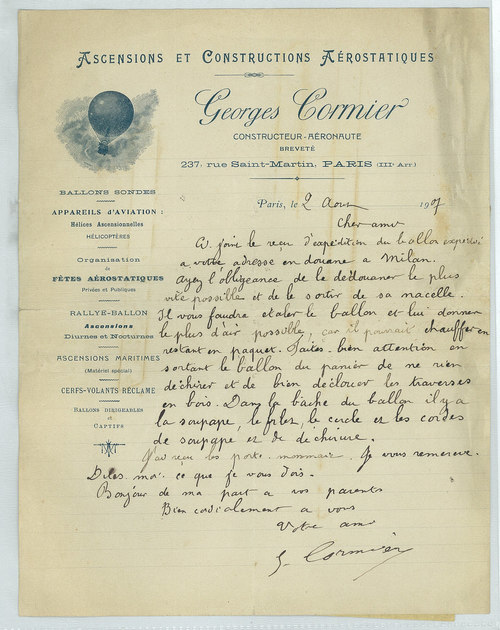 ASCENSIONS ET CONSTRUCTIONS AÉROSTATIQUES
Georges Cormier
CONSTRUCTEUR-AÉRONAUTE
BREVETÉ
237, rue Saint-Martin, PARIS (IIIe Arrt)
BALLONS SONDES
APPAREILS d'AVIATION :
Hélices Ascensionnelles
HÉLICOPTÈRES
Organisation
de
FÊTES AÉROSTATIQUES
Privées et Publiques
RALLYE-BALLON
Ascensions
Diurnes et Nocturnes
ASCENSIONS MARITIMES
(Matériel spécial)
CERFS-VOLANTS RÉCLAME
BALLONS DIRIGEABLES
et
CAPTIFS
Paris, le 2 Aout 1907
Cher ami
Ci joint le recu d'expédition du ballon expédié
a votre adresse en douane a Milan.
Ayez l'obligeance de le dedouaner le plus
vite possible et de le sortir de sa nacelle.
Il vous faudra etaler le ballon et lui donner
le plus d'air possible, car il pourrait chauffer en
restant en paquet. Faites bien attention en
sortant le ballon du panier de ne rien
dechirer et de bien déclouer les traverses
en bois. Dans la bâche du ballon il y a
la soupape, le filet, le cercle et les cordes
de soupape et de dechirure.
J'ai recu les porte-monnaie. Je vous remercie.
Dites moi ce que je vous dois.
Bonjour de ma part a vos parents
Bien cordialement a vous
Votre ami
G. Cormier